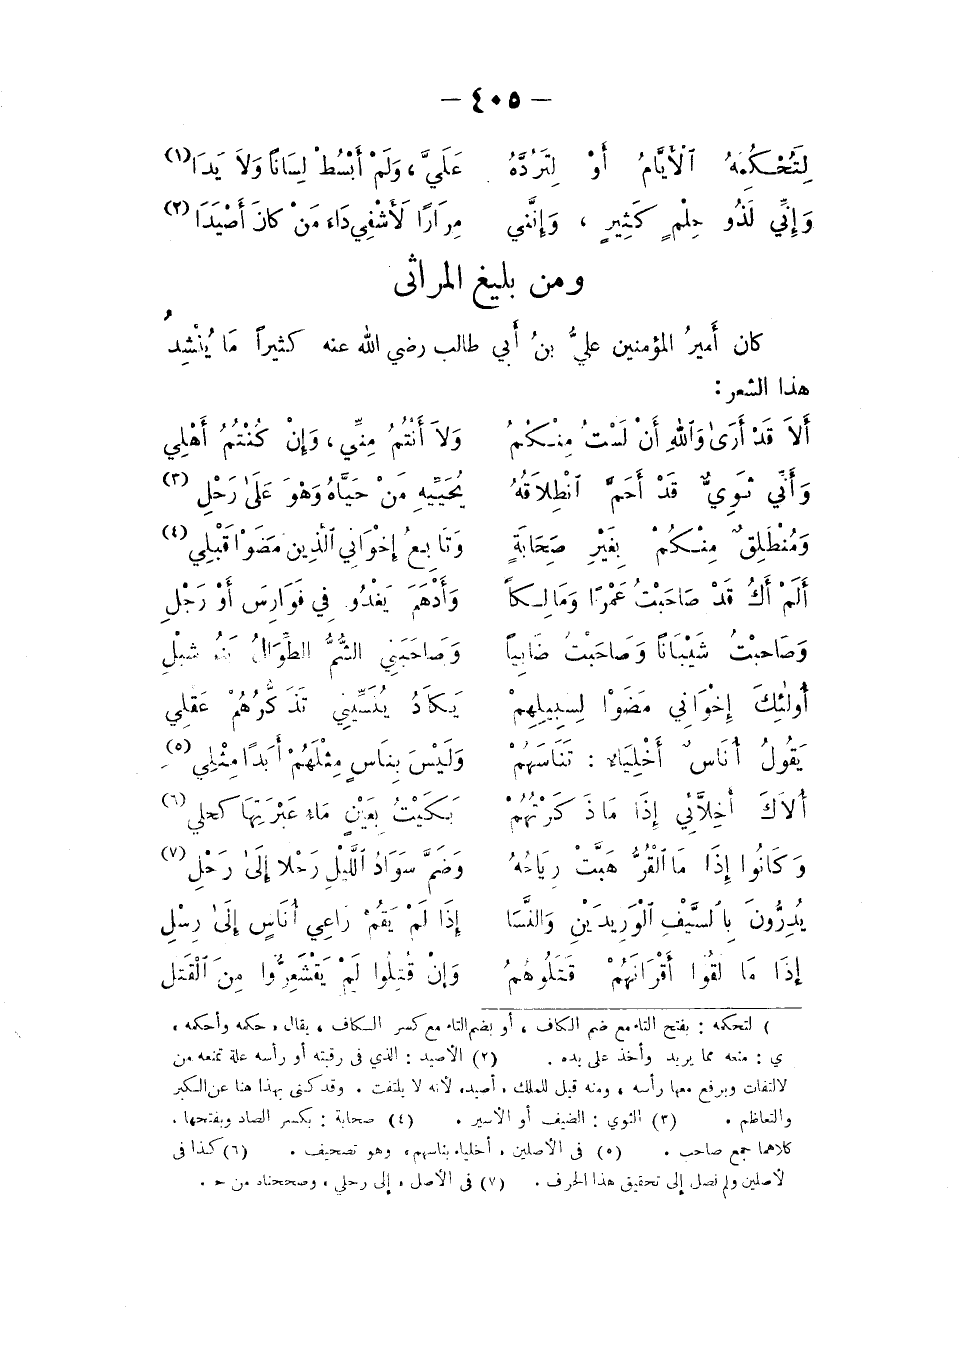 — ٤٠٥ —
لِتُحْكِمَهُ ٱلْأَيَّامُ أَوْ لِتَرُدَّهُ عَلَيَّ ، وَلَمْ أَبْسُطْ لِسَانًا وَلَا يَدَا (١)
وَإِنِّي لَذُو حِلْمٍ كَثِيرٍ ، وَإِنَّنِي مِرَارًا لَأَشْفِي دَاءَ مَنْ كَانَ أَصْيَدَا (٢)
ومن بليغ المراثى
كان أَميرُ المؤمنين عليُّ بنُ أَبي طالب رضي الله عنه كثيراً مَا يُنْشِدُ
هذا الشعر :
أَلَا قَدْ أَرَىٰ وَٱللهِ أَنْ لَسْتُ مِنْكُمُ وَلَا أَنْتُمُ مِنِّي ، وَإِنْ كُنْتُمُ أَهْلِي
وَأَنِّي ثَوِيٌّ قَدْ أَحَمَّ ٱنْطِلَاقُهُ يُحَيِّيهِ مَنْ حَيَّاهُ وَهْوَ عَلَىٰ رَحْلِ (٣)
وَمُنْطَلِقٌ مِنْكُمْ بِغَيْرِ صِحَابَةٍ وَتَابِعُ إِخْوَانِي ٱلَّذِينَ مَضَوْا قَبْلِي (٤)
أَلَمْ أَكُ قَدْ صَاحَبْتُ عَمْرًا وَمَالِكاً وَأَدْهَمَ يَغْدُو فِي فَوَارِسَ أَوْ رَجْلِ
وَصَاحَبْتُ شَيْبَانًا وَصَاحَبْتُ ضَابِياً وَصَاحَبَنِي الشُّمُّ الطِّوَالُ بَنُو شِبْلِ
أُولٰئِكَ إِخْوَانِي مَضَوْا لِسَبِيلِهِمْ يَكَادُ يُنَسِّينِي تَذَكُّرُهُمْ عَقْلِي
يَقُولُ أُنَاسٌ أَخْلِيَاءُ : تَنَاسَهُمْ وَلَيْسَ بِنَاسٍ مِثْلَهُمْ أَبَدًا مِثْلِي (٥)
أُلَاكَ أَخِلَّائِي إِذَا مَا ذَكَرْتُهُمْ بَكَيْتُ بِعَيْنٍ مَاءُ عَبْرَتِهَا كُحْلِي (٦)
وَكَانُوا إِذَا مَا ٱلْقُرُّ هَبَّتْ رِيَاحُهُ وَضَمَّ سَوَادُ ٱللَّيْلِ رَحْلًا إِلَىٰ رَحْلِ (٧)
يُدِرُّونَ بِٱلسَّيْفِ ٱلْوَرِيدَيْنِ وَالنَّسَا إِذَا لَمْ يَقُمْ رَاعِي أُنَاسٍ إِلَىٰ رِسْلِ
إِذَا مَا لَقُوا أَقْرَانَهُمْ قَتَلُوهُمُ وَإِنْ قُتِلُوا لَمْ يَقْشَعِرُّوا مِنَ ٱلْقَتْلِ
) لتحكه : بفتح التاء مع ضم الكاف ، أو بضم التاء مع كسر الكاف ، يقال ، حكه وأحكه ،
ي : منعه مما يريد وأخذ على يده . (٢) الأصيد : الذي فى رقبته أو رأسه علة تمنعه من
لالتفات ويرفع معها رأسه ، ومنه قيل للملك ، أصيد، لأنه لا يلتفت . وقد كنى بهذا هنا عن الكبر
والتعاظم . (٣) الثوي : الضيف أو الأسير . (٤) صحابة : بكسر الصاد وبفتحها ،
كلاهما جمع صاحب . (٥) فى الأصلين ، أخلياء بناسهم، وهو تصحيف . (٦) كذا فى
لأصلين ولم نصل إلى تحقيق هذا الحرف . (٧) فى الأصل ، إلى رحلي ، وصححناه من ح .